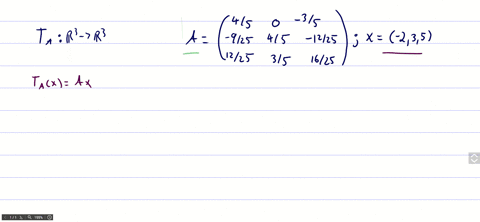 T_A : ℝ³ -> ℝ³
A = ( 4/5 0 -3/5
-9/25 4/5 -12/25
12/25 3/5 16/25 ) ; x = (-2,3,5)
T_A(x) = Ax